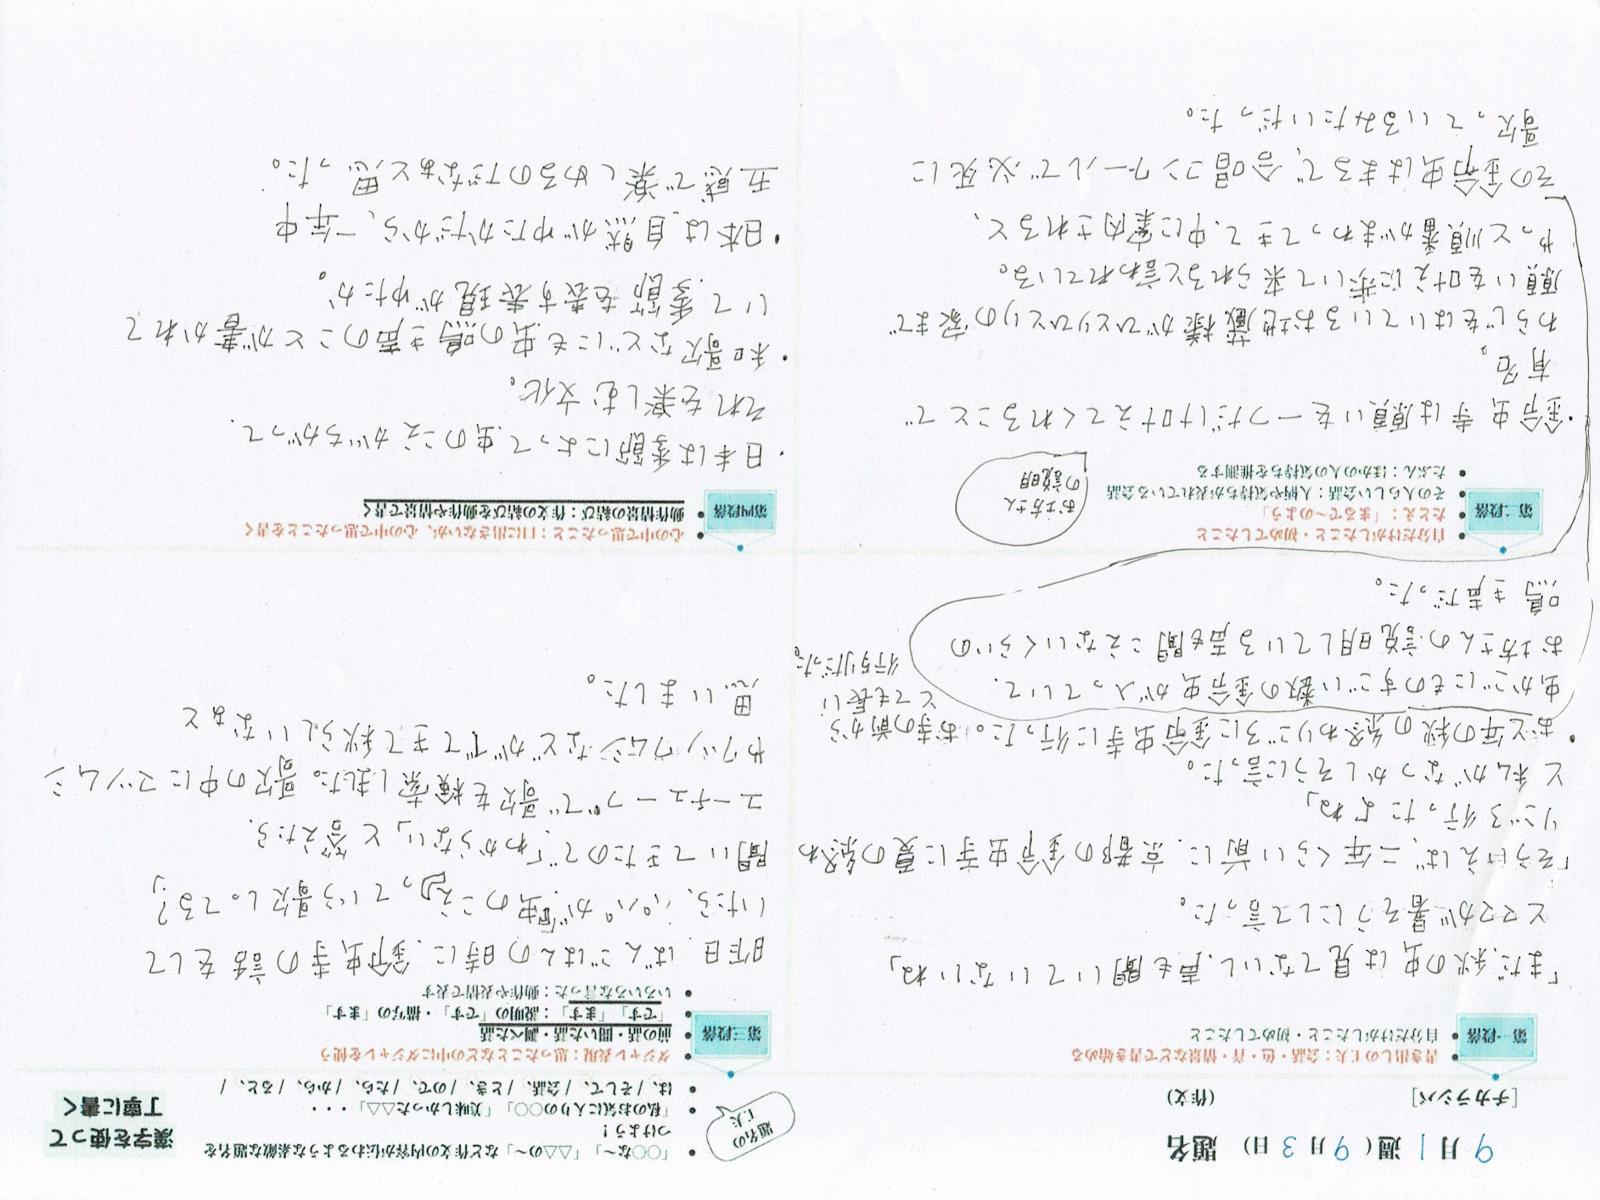 9月1週(9月3日) 題名
[チカラシバ] (作文)
題名の
工夫
「○○な~」「△△の~」など作文の内容が伝わるような素敵な題名を
つけよう!
「私のお気に入りの○○」「美味しかった△△」・・・
は、/そして、/会話、/とき、/ので、/たら、/から、/ると、/
漢字を使って
丁寧に書く
第一段落
書き出しの工夫:会話・色・音・情景などで書き始める
自分だけがしたこと・初めてしたこと
「まだ、秋の虫は見てないし、声も聞いていないね」
とママが暑そうにして言った。
「そう言えば、二年くらい前に、京都の鈴虫寺に夏の終わ
りごろ行ったよね」
と私がなつかしそうに言った。
・おと年の秋の終わりごろに鈴虫寺に行った。お寺の前から
とても長い
行列だった。
虫かごにものすごい数の鈴虫が入っていて、
お坊さんの説明している声も聞こえないくらいの
鳴き声だった。
第二段落
自分だけがしたこと・初めてしたこと
たとえ:「まるで~のよう」
その人らしい会話:人柄や気持ちが表れている会話
たぶん:ほかの人の気持ちを推測する
お坊さん
の説明
・鈴虫寺は願いを一つだけ叶えてくれることで
有名。
わらじをはいているお地蔵様がひとりひとりの家まで
願いを叶えに歩いて来られると言われている。
やっと順番がまわってきて、中に案内されると、
その鈴虫はまるで、合唱コンクールで必死に
歌っているみたいだった。
第三段落
ダジャレ表現:思ったことなどの中にダジャレを使う
前の話・聞いた話・調べた話
「です」「ます」:説明の「です」・描写の「ます」
いろいろな言った:動作や表情で表す
昨日、ばんごはんの時に、鈴虫寺の話をして
いたら、パパが「『虫のこえ』っていう歌しってる?」
聞いてきたので、「わからない」と答えたら、
ユーチューブで歌を検索しました。歌の中にマツムシ
やクツワムシなどがでてきて秋らしいなぁと
思いました。
第四段落
心の中で思ったこと:口に出さないが、心の中で思ったことを書く
動作情景の結び:作文の結びを動作や情景で書く
・日本は季節によって、虫のこえがちがって、
それを楽しむ文化。
・和歌などにも虫の鳴き声のことが書かれて
いて、季節を表す表現がゆたか。
・日本は、自然がゆたかだから、一年中
五感で楽しめるのだなぁと思った。